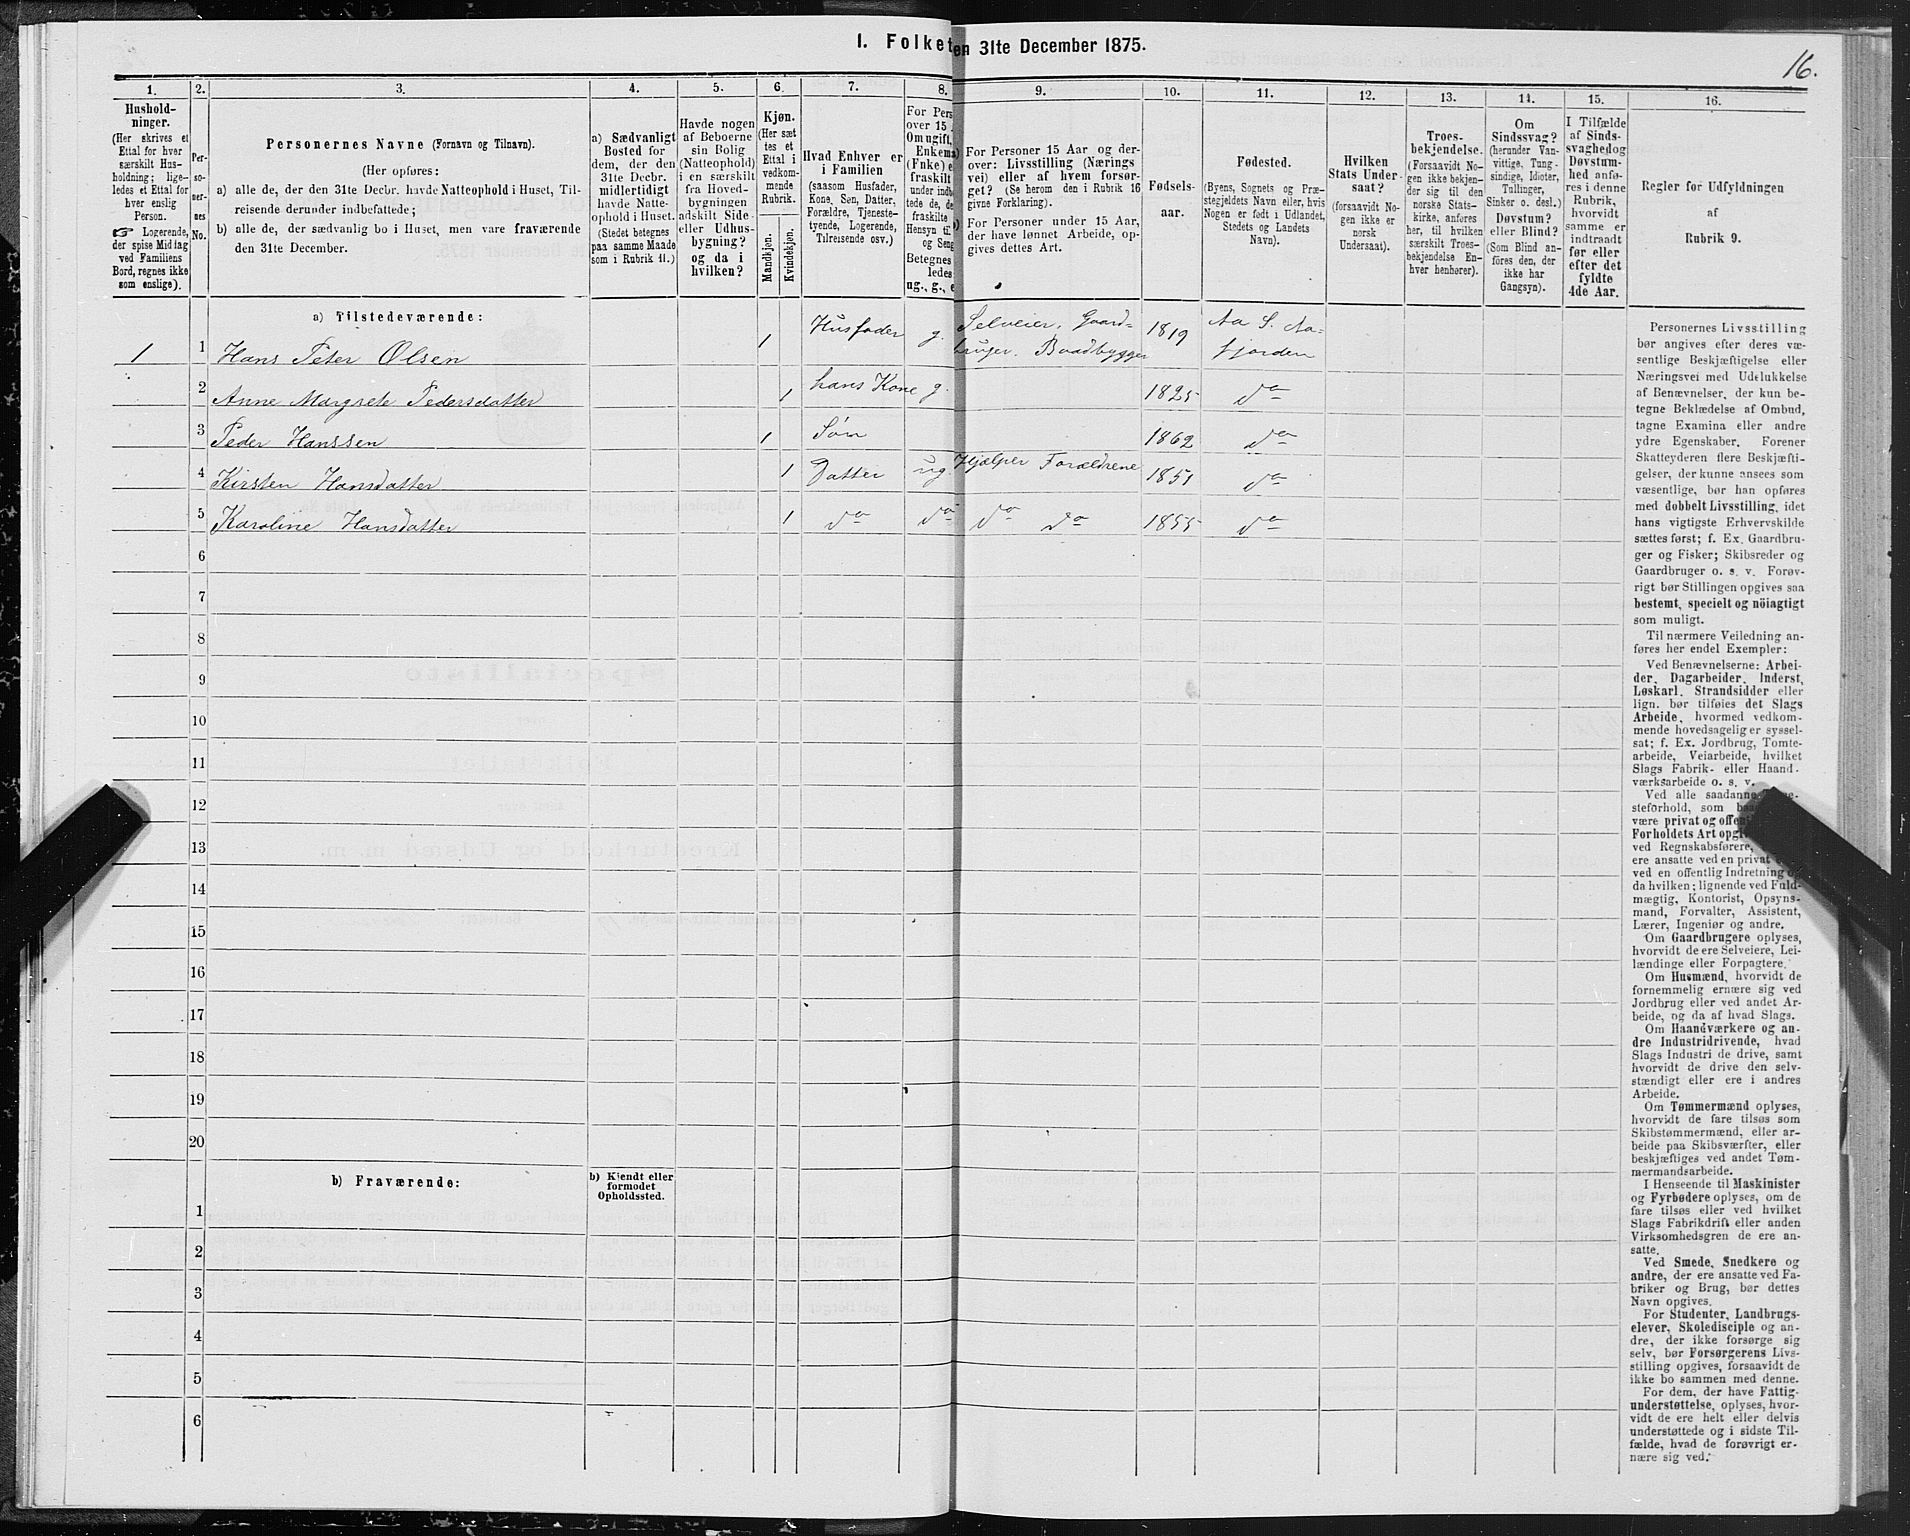 1. Folket en 31te December 1875.
16.
1.
Hushold-
ninger.
(Her skrives et
Ettal for hver
særskilt Hus-
holdning; lige-
ledes et Ettal for
hver enslig
Person.
☞ Logerende,
der spise Middag
ved Familiens
Bord, regnes ikke
som enslige).
2.
Per-
so-
ner-
nes
No.
3.
Personernes Navne (Fornavn og Tilnavn).
(Her opføres:
a) alle de, der den 31te Decbr. havde Natteophold i Huset, Til-
reisende derunder indbefattede;
b) alle de, der sædvanlig bo i Huset, men vare fraværende
den 31te December.
4.
a) Sædvanligt
Bosted for
dem, der den
31te Decbr.
midlertidigt
havde Natte-
ophold i Huset.
(Stedet betegnes
paa samme Maade
som i Rubrik 11.)
5.
Havde nogen
af Beboerne
sin Bolig
(Natteophold)
i en særskilt
fra Hoved-
bygningen
adskilt Side-
eller Udhus-
bygning?
og da i
hvilken?
6.
Kjøn.
(Her sæt
tes et
Ettal i
vedkom-
mende
Rubrik.
Mandkjøn.
Kvindekjøn.
7.
Hvad Enhver er
i Familien
(saasom Husfader,
Kone, Søn, Datter,
Forældre, Tjeneste-
tyende, Logerende,
Tilreisende osv.)
8.
For Pers
over 15
Om ugift,
Enkema
(Fnke) e
fraskilt
under indb
tede de, de
fraskilte
Hensyn til
og Seng
Betegnes
ledes
ug., g., e
9.
For Personer 15 Aar og der-
over: Livsstilling (Nærings
vei) eller af hvem forsør-
get? (Se herom den i Rubrik 16
givne Forklaring).
For Personer under 15 Aar,
der have lønnet Arbeide, op-
gives dettes Art.
10.
Fødsels-
aar.
11.
Fødested.
(Byens, Sognets og Præ-
stegjeldets Navn eller, hvis
Nogen er født i Udlandet,
Stedets og Landets
Navn).
12.
Hvilken
Stats Under
saat?
(forsaavidt No-
gen ikke er
norsk
Undersaat).
13.
Troes-
bekjendelse.
(Forsaavidt No-
gen ikke bekjen-
der sig til den
norske Stats-
kirke, anføres
her, til hvilken
særskilt Troes-
bekjendelse En-
hver henhører).
14.
Om
Sindssvag?
(herunder Van-
vittige, Tung-
sindige, Idioter,
Tullinger,
Sinker o. desl.)
Døvstum?
eller Blind?
(Som Blind an-
föres den, der
ikke har
Gangsyn).
15.
I Tilfælde
af Sinds-
svaghedog
Døvstum-
hed anfø-
res i denne
Rubrik,
hvorvidt
samme er
indtraadt
før eller
efter det
fyldte
4de Aar.
16.
Regler for Udfyldningen
af
Rubrik 9.
a) Tilstedeværende:
1 1 Hans Peter Olsen 1 Husfader g. Selveier, Gaard- 1819 Aa S. Aa-
bruger. Baadbygger fjorden
2 Anne Margrete Pedersdatter 1 hans Kone g. 1825 do
3 Peder Hanssen 1 Søn 1862 do
4 Kirsten Hansdatter 1 Datter ug. Hjælper Forældrene 1851 do
5 Karoline Hansdatter 1 do do do do 1855 do
6
7
8
9
10
11
12
13
14
15
16
17
18
19
20
b) Fraværende:
b) Kjendt eller
formodet
Opholdssted.
1
2
3
4
5
6
Personernes Livsstilling
bør angives efter deres væ-
sentlige Beskjæftigelse eller
Næringsvei med Udelukkelse
af Benævnelser, der kun be-
tegne Beklædelse af Ombud,
tagne Examina eller andre
ydre Egenskaber. Forener
Skatteyderen flere Beskjæfti-
gelser, der kunne ansees som
væsentlige, bør han opføres
med dobbelt Livsstilling, idet
hans vigtigste Erhvervskilde
sættes først; f. Ex. Gaardbru-
ger og Fisker; Skibsreder og
Gaardbruger o. s. v. Forøv-
rigt bør Stillingen opgives saa
bestemt, specielt og nöiagtigt
som muligt.
Til nærmere Veiledning an-
føres her endel Exempler:
Ved Benævnelserne: Arbei-
der, Dagarbeider, Inderst,
Løskarl, Strandsidder eller
lign. bør tilføies det Slags
Arbeide, hvormed vedkom-
mende hovedsagelig er syssel-
sat; f. Ex. Jordbrug, Tomte-
arbeide, Veiarbeide, hvilket
Slags Fabrik- eller Haand-
værksarbeide o. s. v.
Ved alle saadanne
steforhold, som
være privat og
Forholdets Art
ved Regnskabsførere,
ere ansatte ved en privat
ved en offentlig Indretning og
da hvilken; lignende ved Fuld-
mægtig, Kontorist, Opsyns-
mand, Forvalter, Assistent,
Lærer, Ingeniør og andre.
Om Gaardbrugere oplyses,
hvorvidt de ere Selveiere, Lei-
lændinge eller Forpagtere.
Om Husmænd, hvorvidt de
fornemmelig ernære sig ved
Jordbrug eller ved andet Ar-
beide, og da af hvad Slags.
Om Haandværkere og an-
dre Industridrivende, hvad
Slags Industri de drive, samt
hvorvidt de drive den selv-
stændigt eller ere i andres
Arbeide.
Om Tømmermænd oplyses,
hvorvidt de fare tilsøs som
Skibstømmermænd, eller ar-
beide paa Skibsværfter, eller
beskjæftiges ved andet Tøm-
mermandsarbeide.
I Henseende til Maskinister
og Fyrbødere oplyses, om de
fare tilsøs eller ved hvilket
Slags Fabrikdrift eller anden
Virksomhedsgren de ere an-
satte.
Ved Smede, Snedkere og
andre, der ere ansatte ved Fa-
briker og Brug, bør dettes
Navn opgives.
For Studenter, Landbrugs-
elever, Skoledisciple og an-
dre, der ikke forsørge sig
selv, bør Forsørgerens Livs-
stilling opgives, forsaavidt de
ikke bo sammen med denne.
For dem, der have Fattig-
understøttelse, oplyses, hvor-
vidt de ere helt eller delvis
understøttede og i sidste Til-
fælde, hvad de forøvrigt er-
nære sig ved.